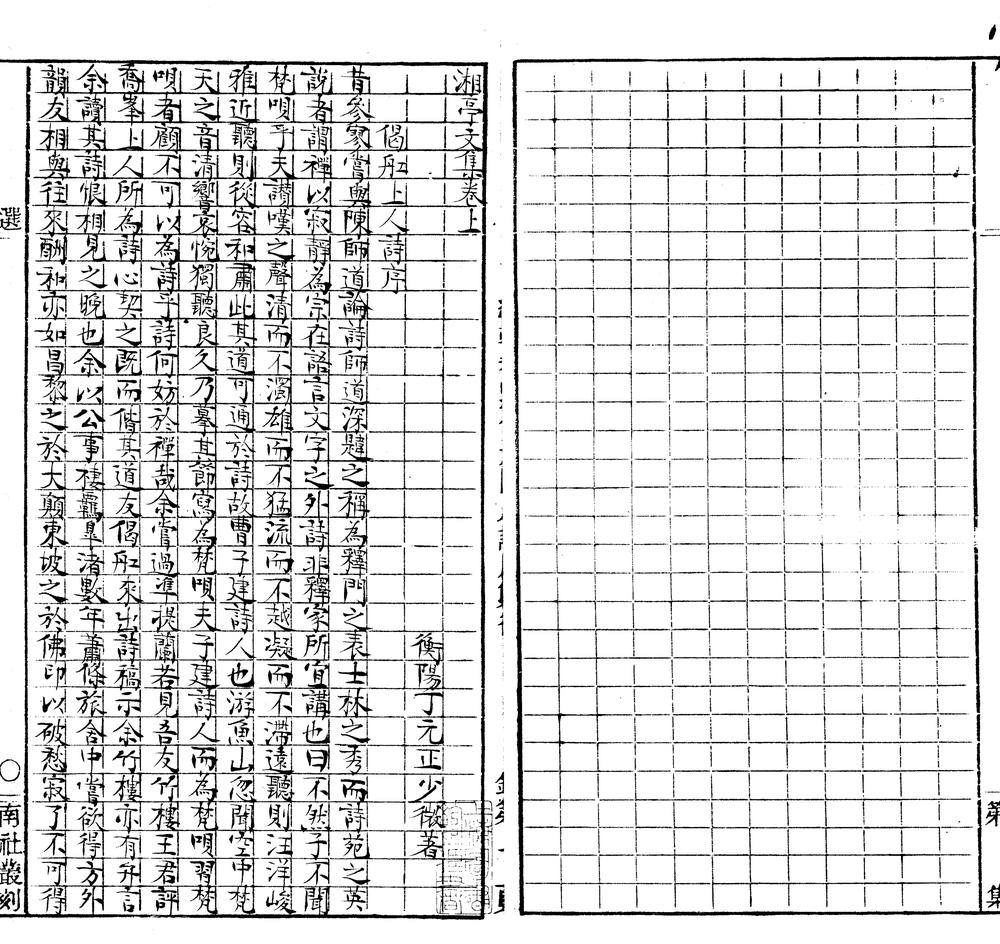 湘亭文集卷上
衡陽丁元正少微著
偈舡上人詩序
昔參寥嘗與陳師道論詩師道深韙之稱為釋門之表士林之秀而詩苑之英
說者謂禪以寂靜為宗在語言文字之外詩非釋家所宜講也曰不然子不聞
梵唄乎夫讚嘆之聲清而不濁雄而不猛流而不越凝而不滯遠聽則汪洋峻
雅近聽則從容和肅此其道可通於詩故曹子建詩人也游魚山忽聞空中梵
天之音清響哀惋獨聽良久乃摹其節寫為梵唄夫子建詩人而為梵唄習梵
唄者顧不可以為詩乎詩何妨於禪哉余嘗過準提蘭若見吾友竹樓王君評
喬峯上人所為詩心契之既而偕其道友偈舡來出詩稿示余竹樓亦有弁言
余讀其詩恨相見之晚也余以公事棲羈皐渚數年蕭條旅舍中嘗欲得方外
韻友相與往來酬和亦如昌黎之於大顛東坡之於佛印以破愁寂了不可得
選
○
南社叢刻
第
集